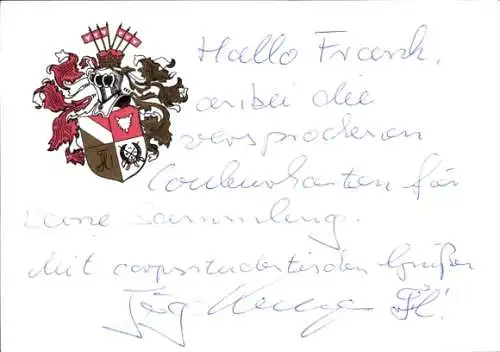 Hallo Frank,
anbei die
versprochenen
Couleurkarten für
Deine Sammlung.
Mit corpsstudentischen Grüßen
Jörg